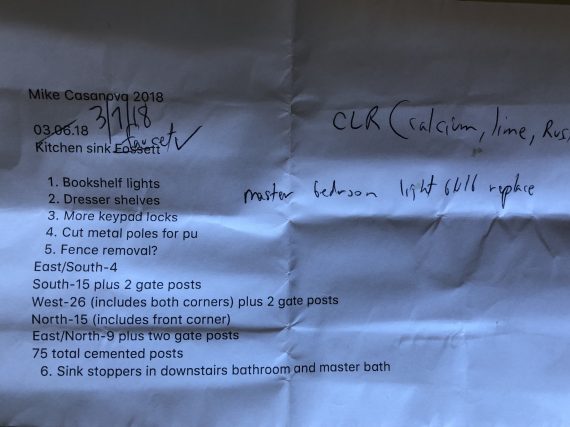 Mike Casanova 2018
3/7/18
03.06.18
faucet ✓
Kitchen sink Fossett
CLR (calcium, lime, Rus
1. Bookshelf lights
master bedroom light bulb replace
2. Dresser shelves
3. More keypad locks
4. Cut metal poles for pu
5. Fence removal?
East/South-4
South-15 plus 2 gate posts
West-26 (includes both corners) plus 2 gate posts
North-15 (includes front corner)
East/North-9 plus two gate posts
75 total cemented posts
6. Sink stoppers in downstairs bathroom and master bath